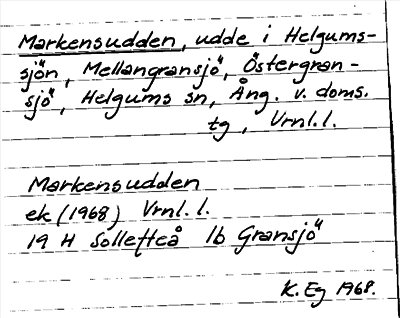 Markensudden, udde i Helgums-
sjön, Mellangransjö, Östergran-
sjö, Helgums sn, Ång. v. doms.
tg, Vrnl.l.
Markensudden
ek (1968) Vrnl.l.
19 H Sollefteå 1b Gransjö
K. Eg 1968.